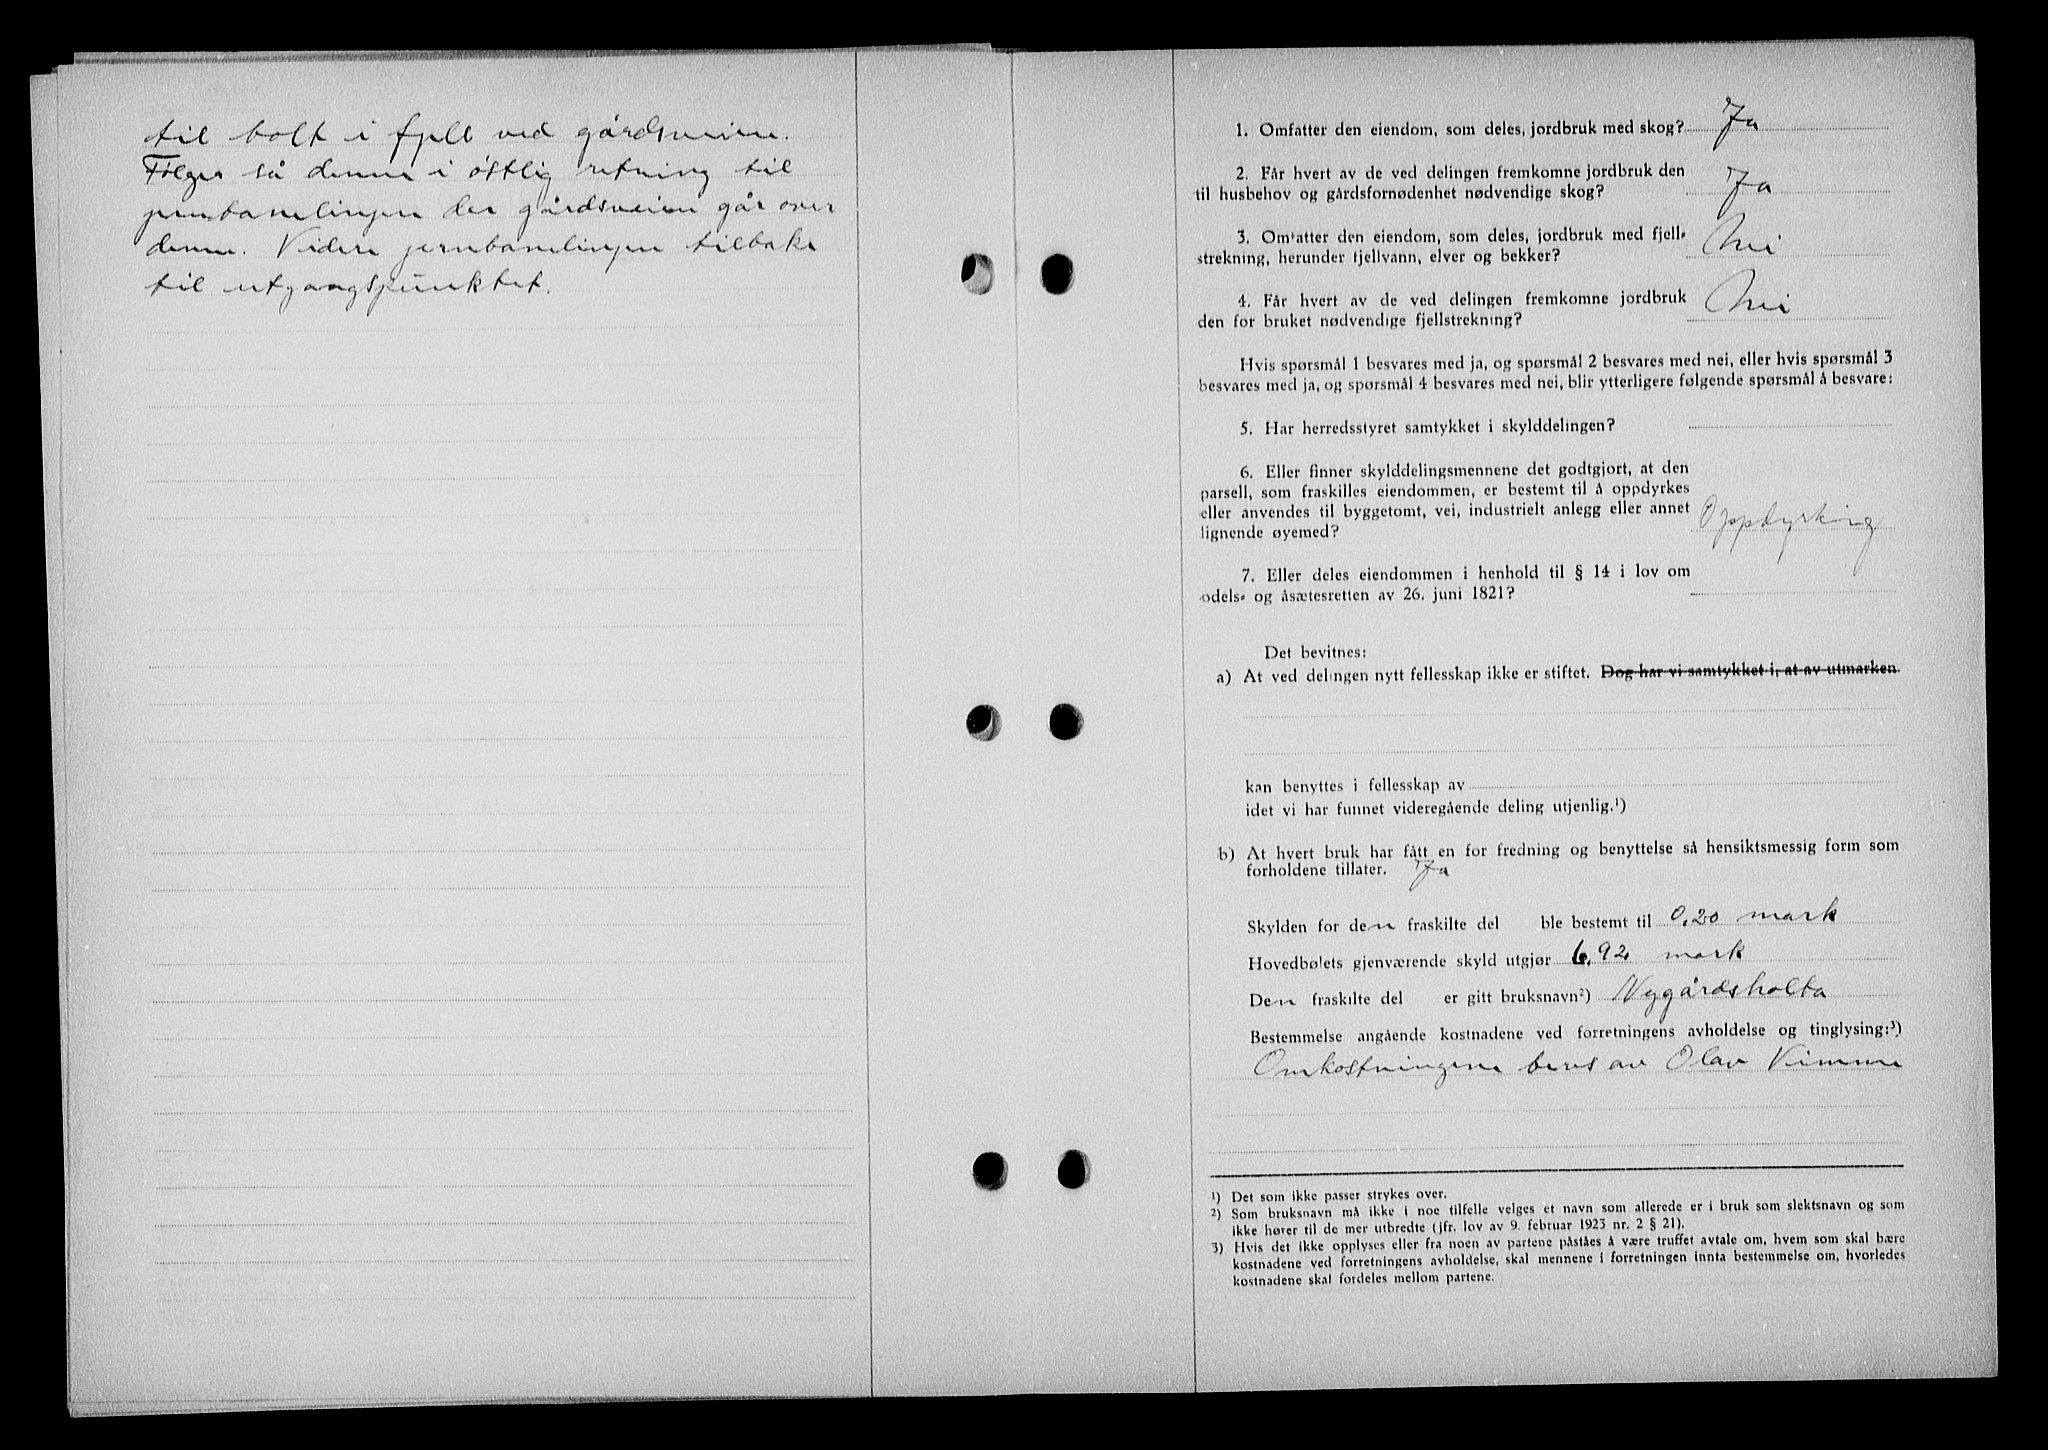 til bolt i fjell ved gårdsveien.
Følger så denne i østlig retning til
jernbanelinjen der gårdsveien går over
denne. Videre jernbanelinjen tilbake
til utgangspunktet.
1. Omfatter den eiendom, som deles, jordbruk med skog? Ja
2. Får hvert av de ved delingen fremkomne jordbruk den
til husbehov og gårdsfornødenhet nødvendige skog? Ja
3. Omfatter den eiendom, som deles, jordbruk med fjell-
strekning, herunder fjellvann, elver og bekker? Nei
4. Får hvert av de ved delingen fremkomne jordbruk
den for bruket nødvendige fjellstrekning? Nei
Hvis spørsmål 1 besvares med ja, og spørsmål 2 besvares med nei, eller hvis spørsmål 3
besvares med ja, og spørsmål 4 besvares med nei, blir ytterligere følgende spørsmål å besvare:
5. Har herredsstyret samtykket i skylddelingen?
6. Eller finner skylddelingsmennene det godtgjort, at den
parsell, som fraskilles eiendommen, er bestemt til å oppdyrkes
eller anvendes til byggetomt, vei, industrielt anlegg eller annet
lignende øyemed? Oppdyrking
7. Eller deles eiendommen i henhold til § 14 i lov om
odels- og åsætesretten av 26. juni 1821?
Det bevitnes:
a) At ved delingen nytt fellesskap ikke er stiftet. Dog har vi samtykket i, at av utmarken
kan benyttes i fellesskap av
idet vi har funnet videregående deling utjenlig.¹)
b) At hvert bruk har fått en for fredning og benyttelse så hensiktsmessig form som
forholdene tillater. Ja
Skylden for den fraskilte del ble bestemt til 0,20 mark
Hovedbølets gjenværende skyld utgjør 6,92 mark
Den fraskilte del er gitt bruksnavn²) Nygårdsholta
Bestemmelse angående kostnadene ved forretningens avholdelse og tinglysing:³)
Omkostningene bæres av Olav Vimme
¹) Det som ikke passer strykes over.
²) Som bruksnavn må ikke i noe tilfelle velges et navn som allerede er i bruk som slektsnavn og som
ikke hører til de mer utbredte (jfr. lov av 9. februar 1923 nr. 2 § 21).
³) Hvis det ikke opplyses eller fra noen av partene påståes å være truffet avtale om, hvem som skal bære
kostnadene ved forretningens avholdelse, skal mennene i forretningen innta bestemmelse om, hvorledes
kostnadene skal fordeles mellom partene.